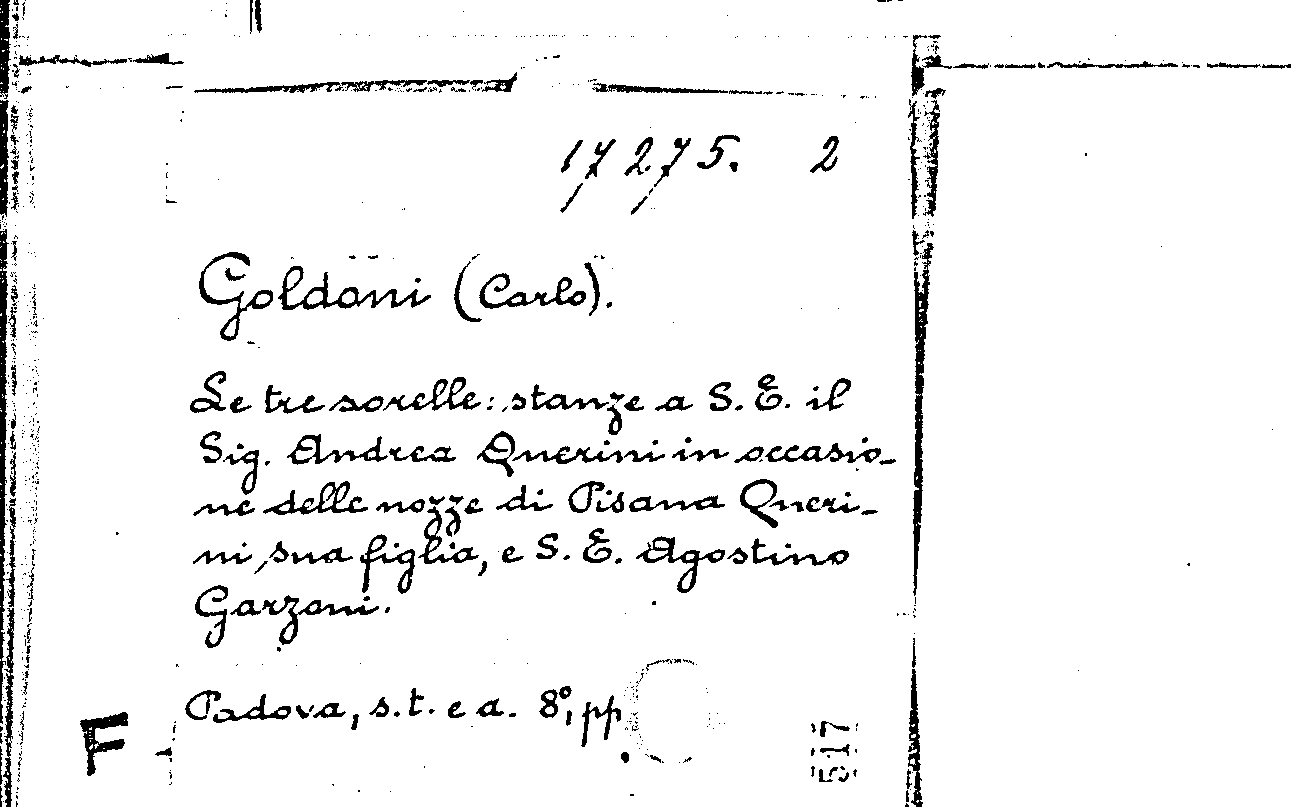 17275. 2
Goldoni (Carlo).
Le tre sorelle: stanze a S. E. il
Sig. Andrea Querini in occasio-
ne delle nozze di Pisana Queri-
ni, sua figlia, e S. E. Agostino
Garzoni.
Padova, s.t. e a. 8°, pp.
F
517